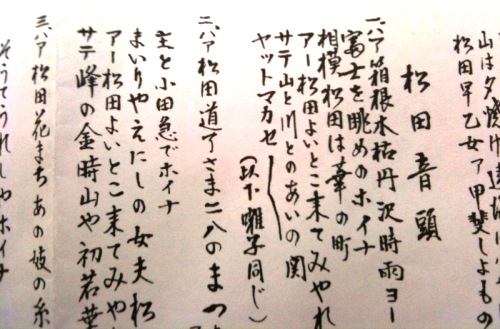 山は夕焼け
松田早乙女ァ甲斐しよもの
松田音頭
一、ハァ箱根木枯丹沢時雨ヨー
富士を眺めのホイナ
相模松田は華の町
アー松田よいとこ来てみやれ
サテ山と川とのあいの関
ヤットマカセ
(以下囃子同じ)
二、ハァ松田道了さま二八のまつ
主と小田急でホイナ
まいりやえにしの女夫松
アー松田よいとこ来てみや
サテ峰の金時山や初若葉
三、ハァ松田花まちあの妓の糸
そうてうれしやホイナ